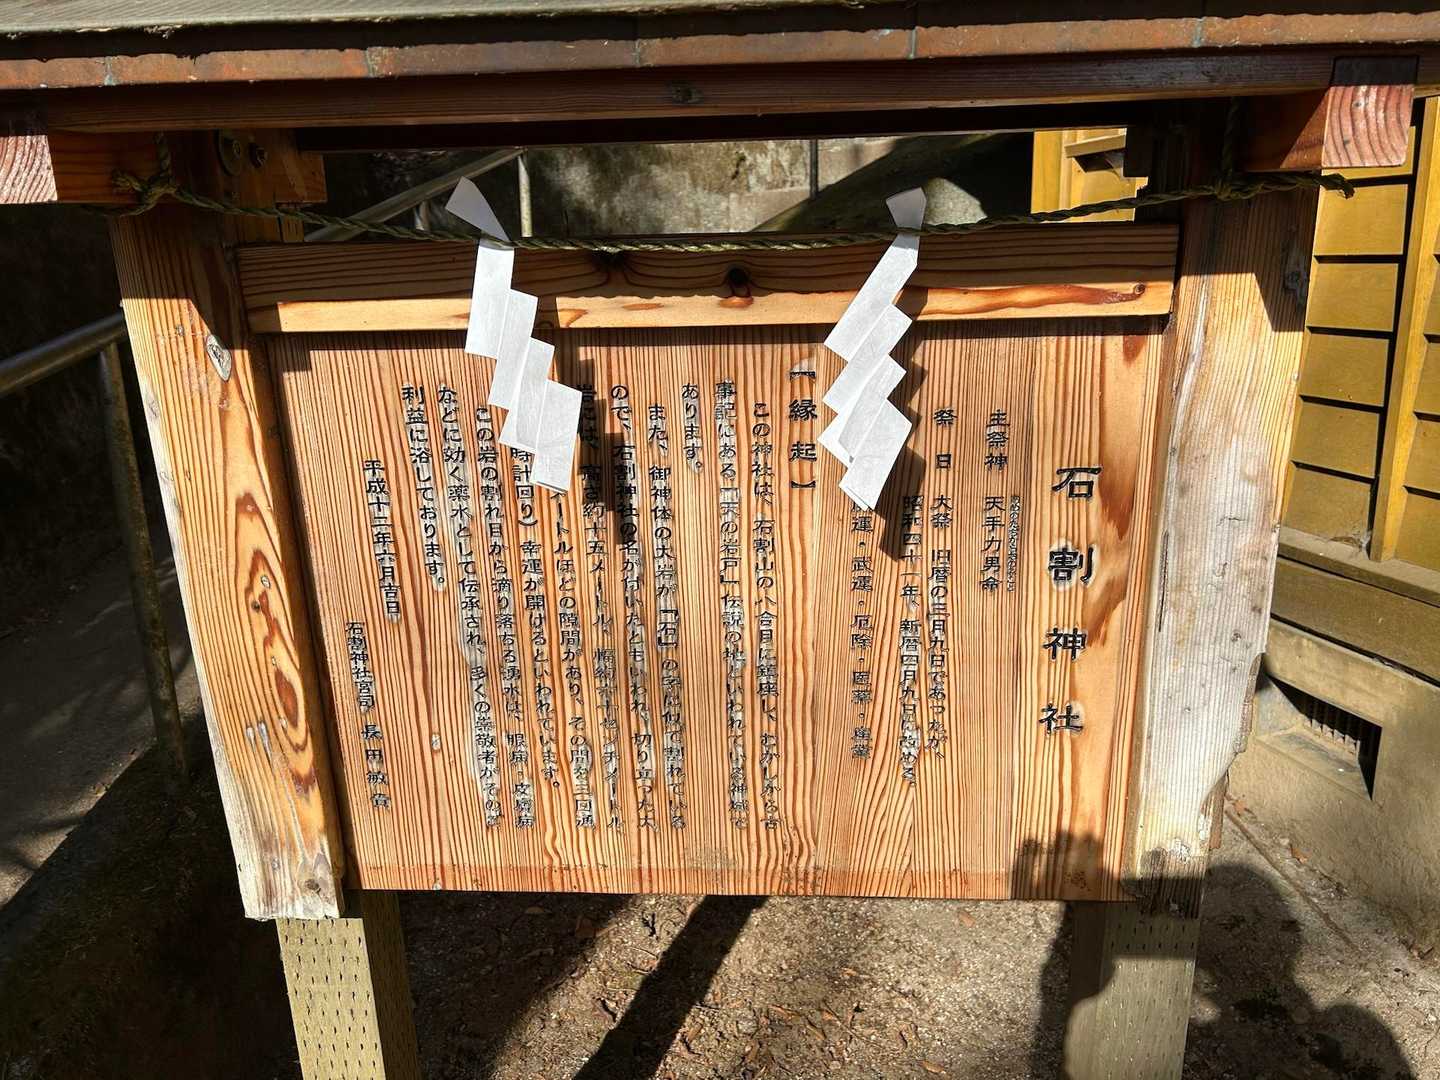 石割神社
主祭神 天手力男命
祭日 大祭 旧暦の三月九日であったが、
昭和四十一年、新暦四月九日に改める。
運・武運・厄除・医薬・産業
【縁起】
この神社は、石割山の八合目に鎮座し、むかしから古
事記にある「天の岩戸」伝説の地といわれている神域で
あります。
また、御神体の大岩が、「石」の字に似て割れている
ので、石割神社の名が付いたともいわれ、切り立った大
岩には、高さ約十五メートル、幅約六十センチメートル
メートルほどの隙間があり、その間を三回通
時計回り)幸運が開けるといわれています。
この岩の割れ目から滴り落ちる湧水は、眼病、皮膚病
などに効く薬水として伝承され、多くの崇敬者がその
利益に浴しております。
平成十二年六月吉日
石割神社宮司 長田敏